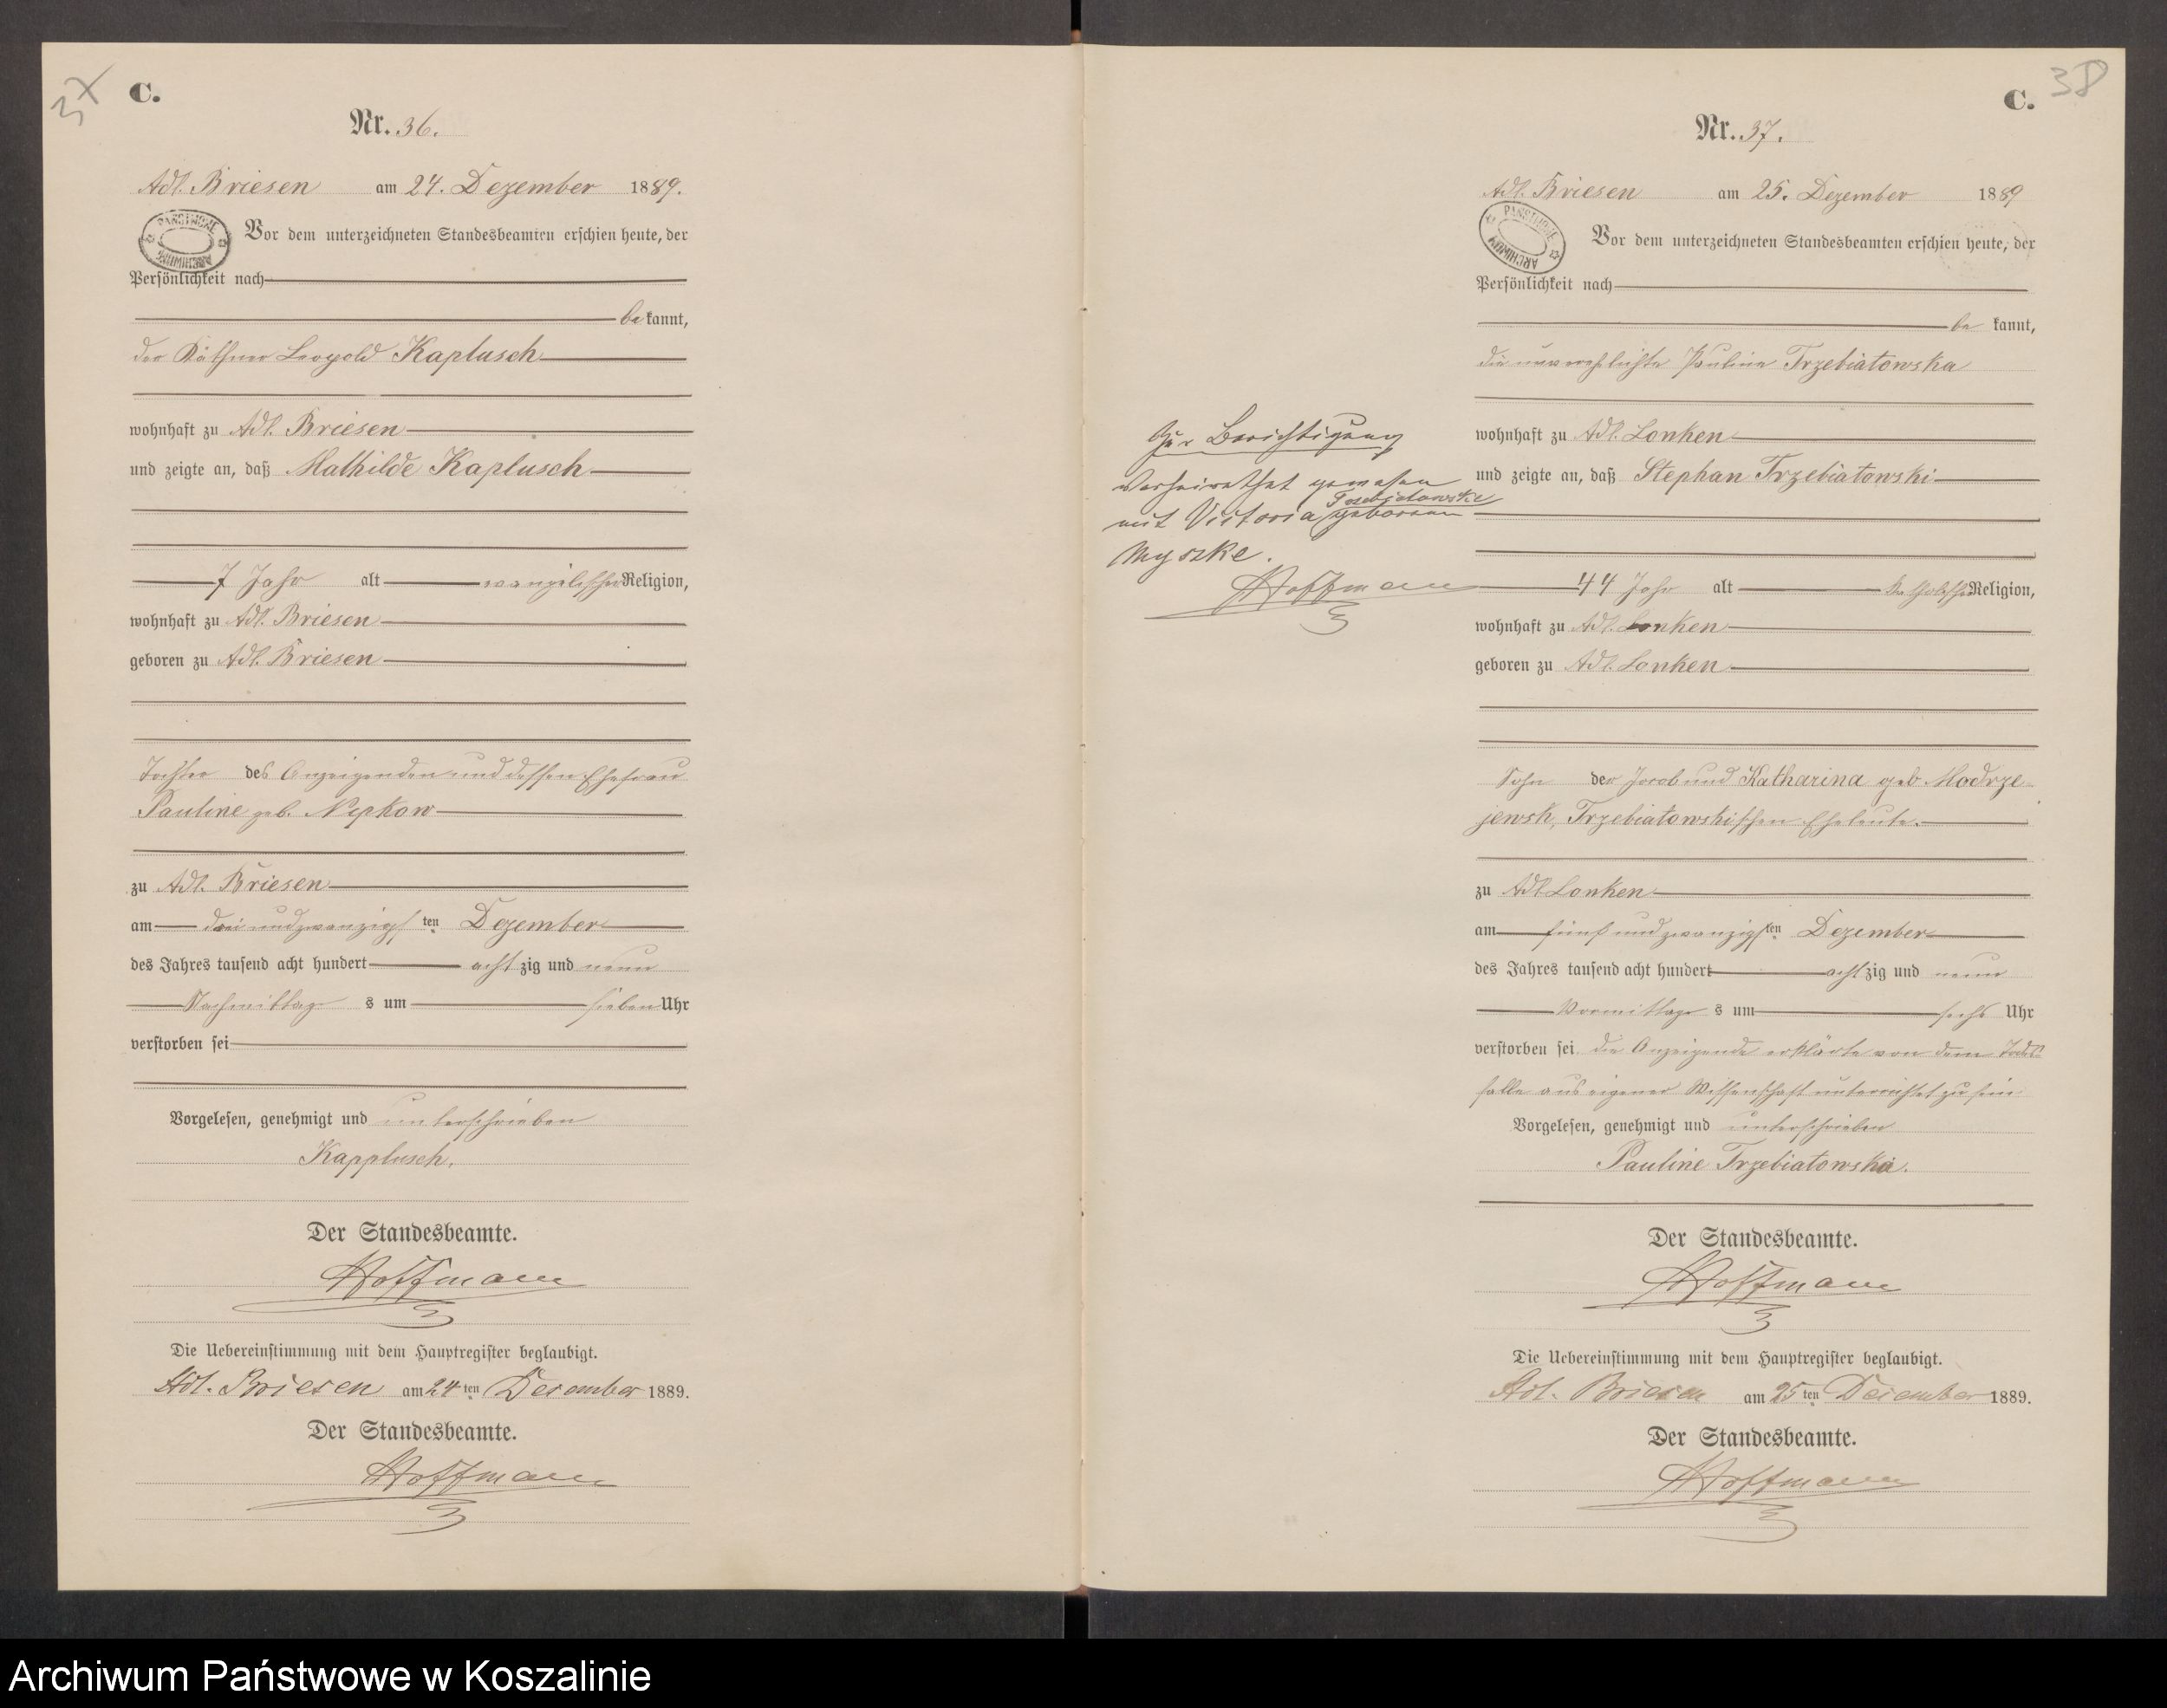 37
C.
Nr. 36.
Adl. Briesen am 24. Dezember 1889.
PAŃSTWOWE ARCHIWUM
Vor dem unterzeichneten Standesbeamten erschien heute, der
Persönlichkeit nach
be kannt,
der Käthner Leopold Kaplusch
wohnhaft zu Adl. Briesen
und zeigte an, daß Mathilde Kaplusch
7 Jahr alt evangelischer Religion,
wohnhaft zu Adl. Briesen
geboren zu Adl. Briesen
Tochter des Anzeigenden und dessen Ehefrau
Pauline geb. Nepkow
zu Adl. Briesen
am drei und zwanzigsten Dezember
des Jahres tausend acht hundert acht zig und neun
Nachmittags um sieben Uhr
verstorben sei
Vorgelesen, genehmigt und unterschrieben
Kapplusch.
Der Standesbeamte.
Hoffmann
Die Uebereinstimmung mit dem Hauptregister beglaubigt.
Adl. Briesen am 24ten Dezember 1889.
Der Standesbeamte.
Hoffmann
38
C.
Nr. 37.
Adl. Briesen am 25. Dezember 1889
PAŃSTWOWE ARCHIWUM
Vor dem unterzeichneten Standesbeamten erschien heute, der
Persönlichkeit nach
be kannt,
die unverehelichte Pauline Trzebiatowska
wohnhaft zu Adl. Lonken
und zeigte an, daß Stephan Trzebiatowski
44 Jahr alt katholischer Religion,
wohnhaft zu Adl. Lonken
geboren zu Adl. Lonken
Sohn der Jacob und Katharina geb. Modrze-
jewsk, Trzebiatowskischen Eheleute.
zu Adl. Lonken
am fünf und zwanzigsten Dezember
des Jahres tausend acht hundert acht zig und neun
Vormittags um sechs Uhr
verstorben sei. Die Anzeigende erklärte von dem Todes-
falle aus eigener Wissenschaft unterrichtet zu sein
Vorgelesen, genehmigt und unterschrieben
Pauline Trzebiatowska.
Der Standesbeamte.
Hoffmann
Die Uebereinstimmung mit dem Hauptregister beglaubigt.
Adl. Briesen am 25ten Dezember 1889.
Der Standesbeamte.
Hoffmann
Zur Berichtigung
verheirathet gewesen
mit Victoria Trzebiatowske geborenen
Myszke.
Hoffmann
Archiwum Państwowe w Koszalinie